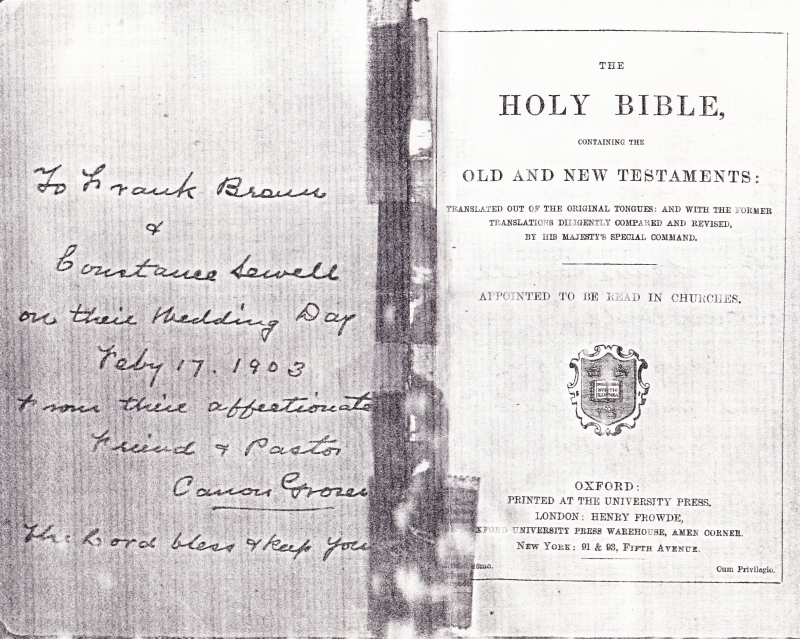 To Frank Braun
&
Constance Sewell
on their Wedding Day
Feby 17. 1903
From their affectionate
Friend & Pastor
Canon
The Lord bless & keep you
THE
HOLY BIBLE,
CONTAINING THE
OLD AND NEW TESTAMENTS:
TRANSLATED OUT OF THE ORIGINAL TONGUES: AND WITH THE FORMER
TRANSLATIONS DILIGENTLY COMPARED AND REVISED,
BY HIS MAJESTY'S SPECIAL COMMAND.
APPOINTED TO BE READ IN CHURCHES.
OXFORD:
PRINTED AT THE UNIVERSITY PRESS.
LONDON: HENRY FROWDE,
OXFORD UNIVERSITY PRESS WAREHOUSE, AMEN CORNER.
NEW YORK: 91 & 93, FIFTH AVENUE.
Cum Privilegio.